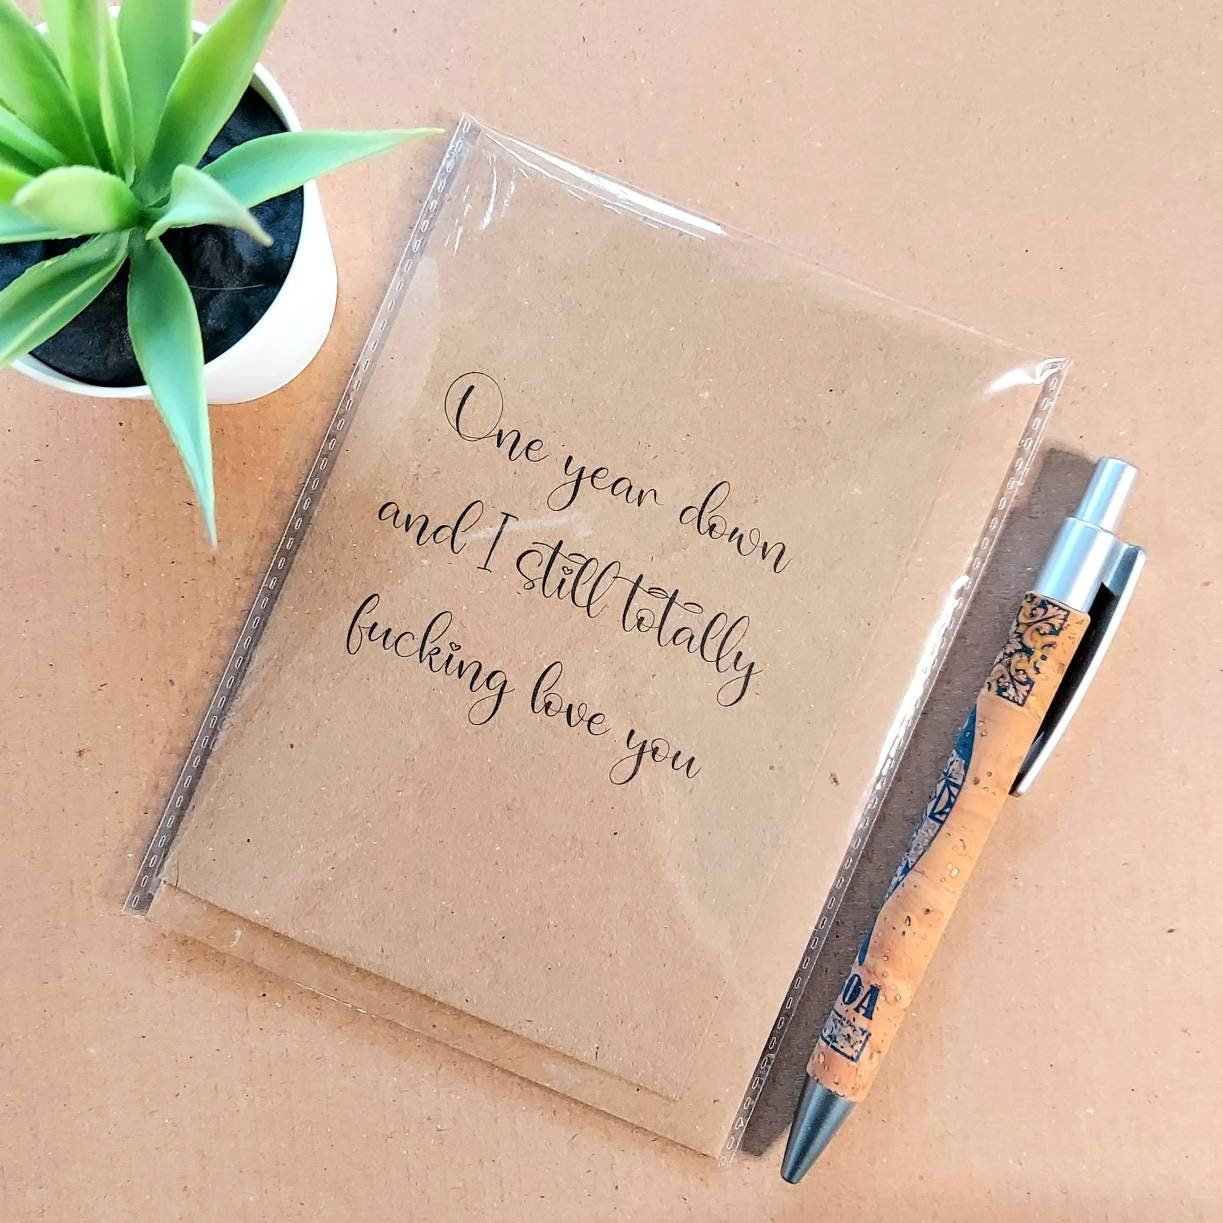 One year down
and I still totally
fucking love you
OA